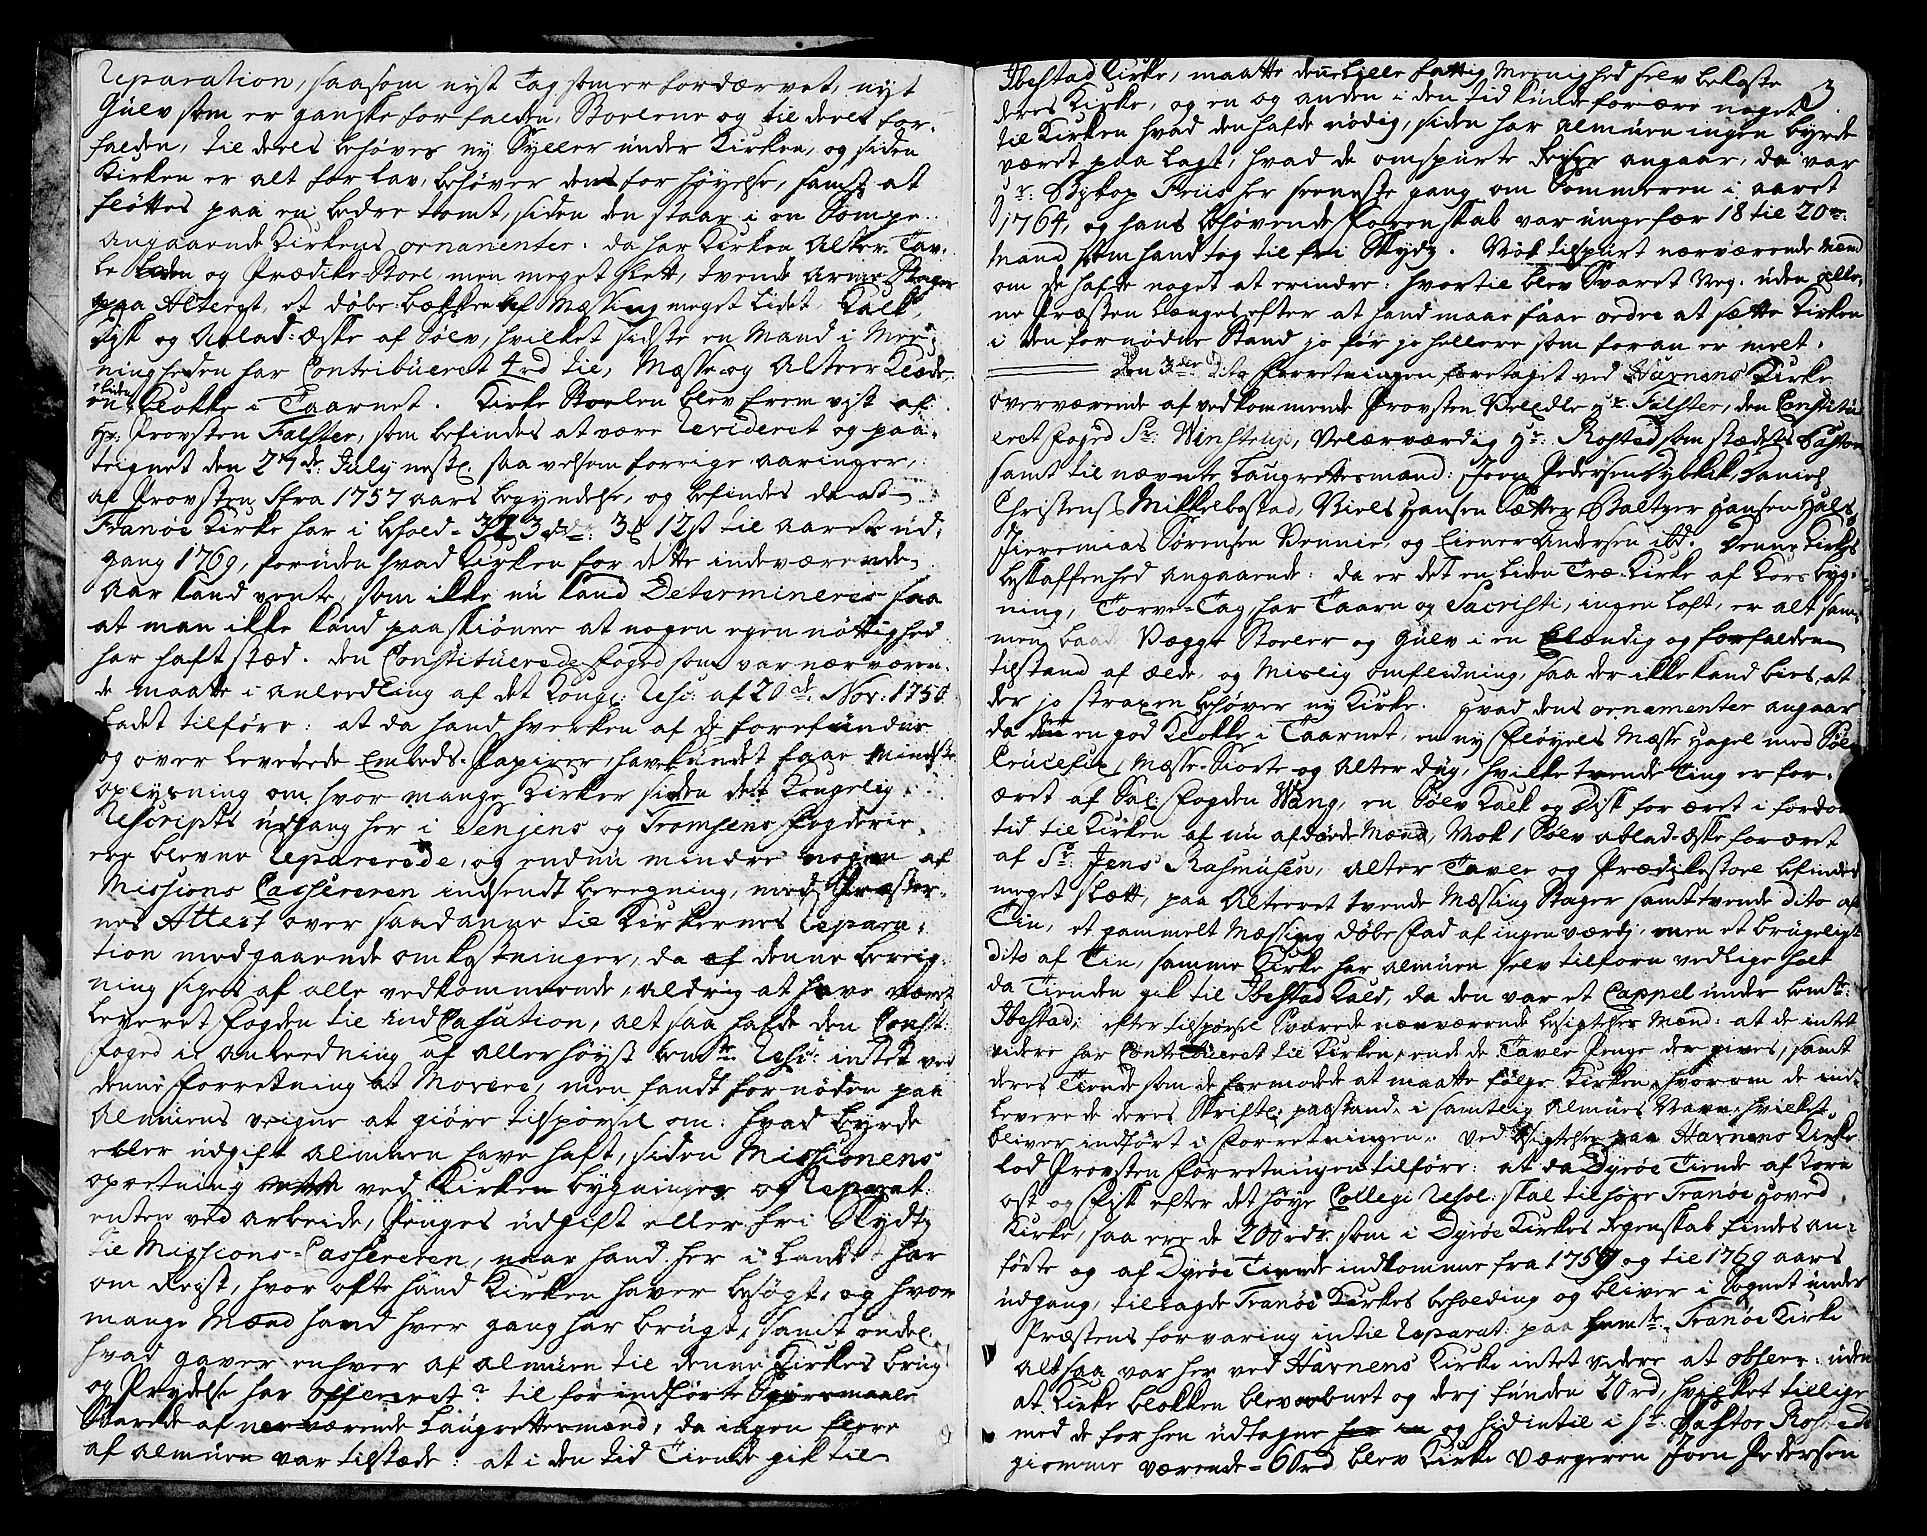 Reparation, saasom nyt Tag som er fordærvet, nyt
Gulv som er ganske forfalden, Stoelene og til deels for-
falden, til deels behøves ny Syller under Kirken, og siden
Kirken er alt for lav, behøver dens forhøyelse, samt at
fløttes paa en bedre tomt, siden den staar i en Sompe.
angaaende Kirkens ornamenter: da har Kirken Alter-Tav-
le og Prædike-Stoel, men meget slett, tvende arme Stager
paa Alteret, et døbe-bækken af Mæssing meget lidet, Kalk,
Disk og Ablad-æske af Sølv, hvilket sidste en Mand i Mee-
nigheden har Contribueret 4 rd til, Messe- og Alter Klæde,
en liden Klokke i Taarnet. Kirke Stoelen blev frem vist af
Hr: Provsten Falster, som befindes at være Revideret og paa-
teignet den 27de July nestl. saa velsom forrige aaringer,
af Provsten fra 1757 aars begyndelse, og befindes da at
Tranöe Kirke har i behold 12 st til aarets ud-
gang 1769, foruden hvad Kirken for dette indeværende
Aar kand vente, som ikke nu kand Determineres saa
at man ikke kand paaskiønne at nogen egen nöttighed
har haft stæd. den Constituerede foged som var nærværen-
de maatte i anledning af det Kongl: Resc: af 20de Nov: 1750
ladet tilføre: at da hand hverken af de forefundne
og over leverede Embeds-Papirer, hav kundet faae mindste
oplysning om hvor mange Kirker siden dett Kongelig
Rescripts udgang her i Senjens og Tromsens fogderie
ere blevne Reparerede, og endnu mindre nogen af
Missions Cassereren indsendt beregning, med Præster-
nes Attest over saadanne til Kirkernes Repara-
tion medgaaende omkostninger, da af denne bereg-
ning siges af alle vedkommende, aldrig at have været
leveret fogden til ind Casation, alt saa hafde den Const:
foged i anledning af allerhöyst bemte Resc: intet ved
denne forretning at Movere, men fandt fornöden paa
Almuens veigne at giöre tilspörsel om: hvad byrde
eller udgift almuen have haft, siden Missionens
opretning ved Kirken bygninger og Reparat:
enten ved arbeide, Penges udgift eller fri Skydtz
til Missions-Cassereren, naar hand her i landet har
om Reyst, hvor ofte hand Kirken haver besögt, og hvor
mange Mænd hand hver gang har brugt, samt endel:
hvad gaver enhver af almuen til denne Kirkes brug
og Prydelse har offereret? til forindförte Spörsmaale
Svarede af nærværende Laugrettesmænd, da ingen flere
af almuen var tilstæde: at i den tid Tiende gik til
3.
Ibestad Kirke, maatte denne lille fattig Meenighed selv bekoste
deres Kirke, og en og anden i den tid kunde forære noget
til Kirken hvad den hafde nödig, siden har almuen ingen byrde
været paa lagt, hvad de omspurte Reyser angaar, da var
Hr: Biskop Friis her seeneste gang om Sommeren i aaret
1764, og hans behövende Forenskab var ungefær 18 til 20
Mand som hand tog til fri Skydtz. Nok tilspurt nærværende Mænd
om de hafde noget at erindre: hvortil blev Svaret Neg. uden alle-
ne Præsten længes efter at hand maae faae ordre at sætte Kirken
i den fornödne Stand jo för jo hellere som foran er melt.
Den 3de Dito forretningen foretaget ved Havnens Kirke
overværende af vedkommende Provsten Velædle Hr Falster, den Constitu-
eret foged Sr: Winstrup, Velærværdig Hr: Rosted som stædets Pastor
samt til nævnte Laugrettesmænd: Joen Pedersen Dybvik, Daniel
Christens: Mikkelbostad, Niels Hansen Sætter, Baltzer Hansen Hals,
Jieremias Sörensen Vennie, og Einer Andersen ibd. Denne Kirkes
beskaffenhed angaaende: da er det en liden Træ-Kirke af Kors byg-
ning, Torve-Tag, har Taarn og Sacristi, ingen loft, er alt sam-
men baade Vægge Stoeler og Gulv i en Elændig og forfalden
tilstand af ælde, og Mislig omfleidning, saa der ikke kand bies, at
der jo straxen behöver ny Kirke. Hvad dens ornamenter angaar
da en god Klokke i Taarnet, en ny Flöyels Messe Hagel med Sölv
Crucefix, Messe-Skiorte og Alter dug, hvilke tvende Ting er for-
æret af Sal: Fogden Wang, en Sölv Kalk og Disk foræret i fordom
tid til Kirken af nu afdöde Mænd, Nok 1 Sölv ablad-æske foræret
af Sr: Jens Rasmusen, alter Tavle og Prædikestoel befindes
meget slett, paa Alteret tvende Messing Stager samt tvende dito af
Tin, et gammelt Messing döbe fad af ingen værdj, men et brugeligt
dito af Tin, samme Kirke har almuen selv tilforn vedlige holt
da Tienden gik til Ibestad Kald, da den var et Cappel under bemte:
Ibestad; efter tilspörsel Svarede nærværende besigtelses Mænd: at de intet
videre har Contribueret til Kirken, end de Tavle Penge der gives, samt
deres Tiende som de formodede at maatte fölge Kirken, hvorom de ind-
leverede deres Skriftl: paastand, i samtlig almues Navn, hvilket
bliver indfört i Forretningen. Ved besigtelsen paa Havnens Kirke
lod Provsten Forretningen tilföre: at da Dyröe Tiende af Korn
ost og fisk efter det höye Collegi Resol: skal tilhöre Tranöe Hoved
Kirke, saa ere de 200 rdr som i Dyröe Kirkes Regenskab findes an-
förte og af Dyröe Tiende indkomme fra 1759 og til 1769 aars
udgang, tillagde Tranöe Kirkes beholding og bliver i Sognet under
Præstens forvaring intil Reparat: paa bemte Tranöe Kirke
altsaa var her ved Havnens Kirke intet videre at obser: uden
at Kirke blokken blev aabnet og derj funden 20 rd, hvilket tillige
med de forhen udtagne og hid intil i Hr: Pastor Rosteds
giemme værende 60 rd blev Kirke Værgeren Joen Pedersen